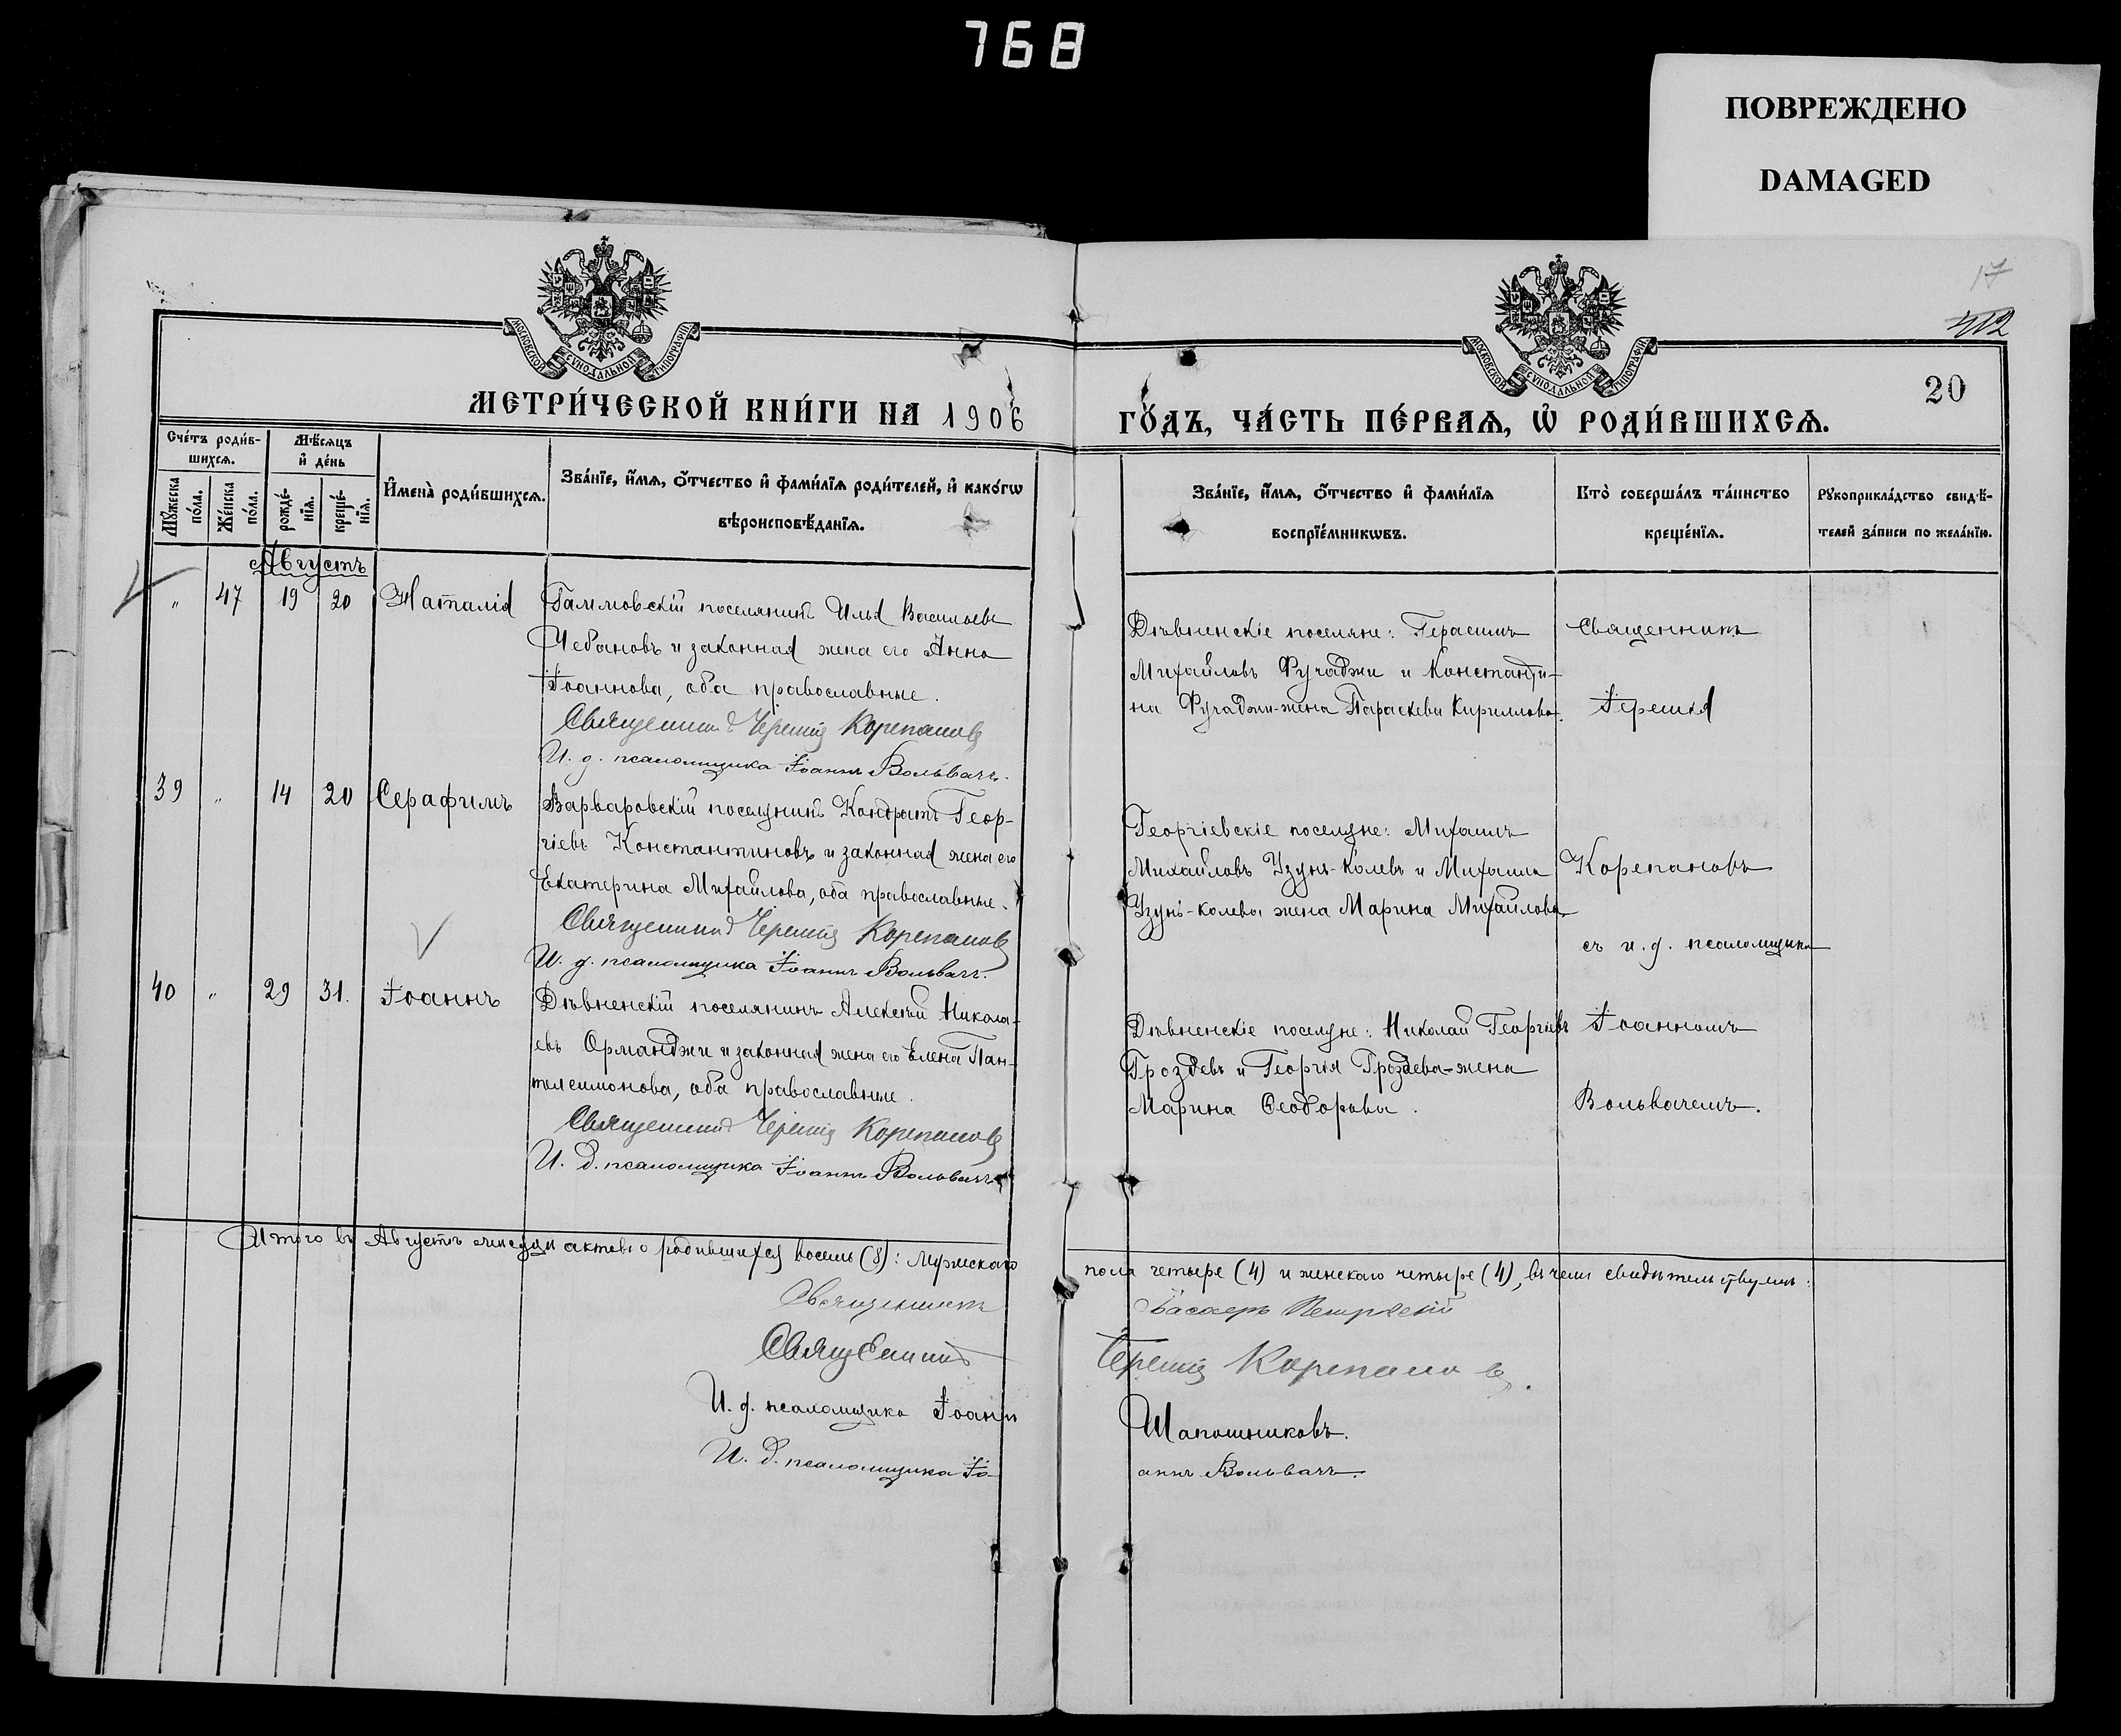 768
ПОВРЕЖДЕНО
DAMAGED
17
412
20
МОСКОВСКОЙ СУНОДАЛЬНОЙ ТИПОГРАФІИ
МОСКОВСКОЙ СУНОДАЛЬНОЙ ТИПОГРАФІИ
МЕТРИ́ЧЕСКОЙ КНИ́ГИ НА 1906
ГО́ДЪ, ЧА́СТЬ ПЕ́РВАѦ, Ѡ РОДИ́ВШИХСѦ.
Сче́тъ роди́в-
шихсѧ.
Мꙋ́жеска
по́ла.
Же́нска
по́ла.
Мѣ́сѧцъ
и҆ де́нь
рожде́-
нїѧ.
креще́-
нїѧ.
И҆мена̀ роди́вшихсѧ.
Зва́нїе, и҆́мѧ, ѻ҆́тчество и҆ фами́лїѧ роди́телей, и҆ како́гѡ
вѣроисповѣ́данїѧ.
Зва́нїе, и҆́мѧ, ѻ҆́тчество и҆ фами́лїѧ
воспрїе́мникѡвъ.
Кто̀ соверша́лъ та́инство
креще́нїѧ.
Рꙋкоприкла́дство свидѣ́-
телей за́писи по жела́нїю.
Августъ
" 47 19 20 Наталія
Гаммовскій поселянинъ Илья Васильевъ
Чебановъ и законная жена его Анна
Іоаннова, оба православные.
Священникъ Іеремія Корепановъ
И. д. псаломщика Іоаннъ Вольвачъ.
Дѣвненскіе поселяне: Герасимъ
Михайловъ Фучаджи и Константи-
на Фучаджи-жена Параскева Кириллова.
Священникъ
Іеремія
39 " 14 20 Серафимъ
Варваровскій поселянинъ Кондратъ Геор-
гіевъ Константиновъ и законная жена его
Екатерина Михайлова, оба православные.
Священникъ Іеремія Корепановъ
И. д. псаломщика Іоаннъ Вольвачъ.
Георгіевскіе поселяне: Михаилъ
Михайловъ Узунъ-Колевъ и Михаила
Узунъ-Колева жена Марина Михайлова.
Корепановъ
съ и. д. псаломщика
40 " 29 31. Іоаннъ
Дѣвненскій поселянинъ Алексѣй Никола-
евъ Орманджи и законная жена его Елена Пан-
телеимонова, оба православные.
Священникъ Іеремія Корепановъ
И. д. псаломщика Іоаннъ Вольвачъ.
Дѣвненскіе поселяне: Николай Георгіевъ
Гроздевъ и Георгія Гроздева-жена
Марина Ѳеодорова.
Іоанномъ
Вольвачемъ.
Итого въ Августѣ мѣсяцѣ актовъ о родившихся восемь (8): мужскаго
пола четыре (4) и женскаго четыре (4), въ чемъ свидѣтельствуемъ:
Священникъ
Священникъ Іеремія Корепановъ.
И. д. псаломщика Іоаннъ Шапошниковъ.
И. д. псаломщика Іоаннъ Вольвачъ.